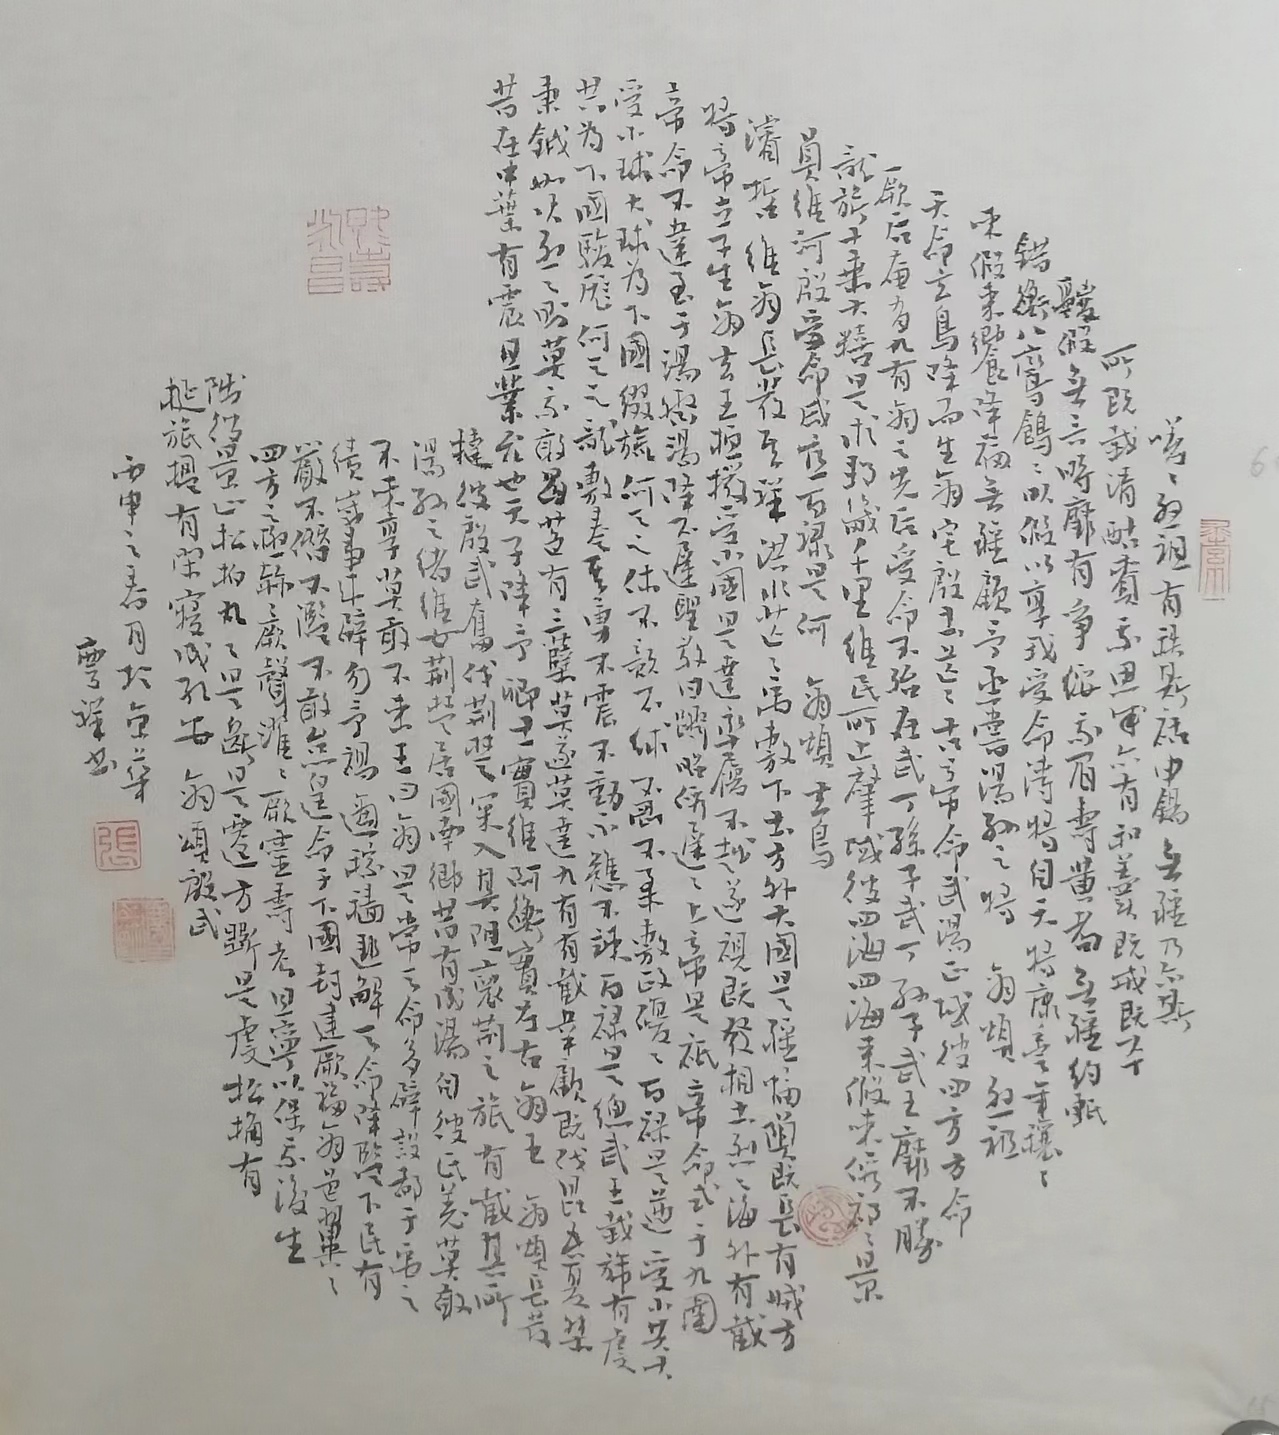 嗟々烈祖有秩斯祜申錫無疆及爾斯
所既載清酤賚我思成亦有和羹既戒既平
鬷假無言時靡有爭綏我眉壽黃耇無疆約軧
錯衡八鸞鶬々以假以享我受命溥將自天降康豐年穰々
來假來饗降福無疆顧予烝嘗湯孫之將 商頌 烈祖
天命玄鳥降而生商宅殷土芒々古帝命武湯正域彼四方方命
厥后奄有九有商之先后受命不殆在武丁孫子武丁孫子武王靡不勝
龍旂十乘大糦是承邦畿千里維民所止肇域彼四海四海來假來假祁々景
員維河殷受命咸宜百祿是何 商頌 玄鳥
濬哲維商長發其祥洪水芒々禹敷下土方外大國是疆幅隕既長有娀方
將帝立子生商玄王桓撥受小國是達率履不越遂視既發相土烈々海外有截
帝命不違至于湯齊湯降不遲聖敬日躋昭假遲々上帝是祗帝命式于九圍
受小球大球為下國綴旒何天之休不競不絿不剛不柔敷政優々百祿是遒受小共大
共為下國駿厖何天之龍敷奏其勇不震不動不戁不竦百祿是總武王載旆有虔
秉鉞如火烈々則莫我敢曷苞有三蘖莫遂莫達九有有截韋顧既伐昆吾夏桀
昔在中葉有震且業允也天子降予卿士實維阿衡實左右商王 商頌 長發
撻彼殷武奮伐荊楚罙入其阻裒荊之旅有截其所
湯孫之緒維女荊楚居國南鄉昔有成湯自彼氐羌莫敢
不來享莫敢不來王曰商是常天命多辟設都于禹之
績歲事來辟勿予禍適稼穡匪解天命降監下民有
嚴不僭不濫不敢怠遑命于下國封建厥福商邑翼々
四方之極赫々厥聲濯々厥靈壽考且寧以保我後生
陟彼景山松柏丸々是斷是遷方斲是虔松桷有
梴旅楹有閑寢成孔安 商頌 殷武
丙申之春月於京華
雲祥書
張